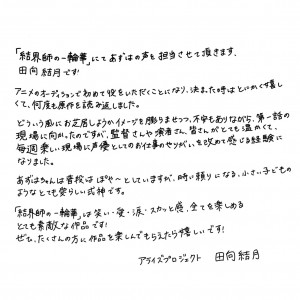 「結界師の一輪華」にてあずはの声を担当させて頂きます、
田向結月です!
アニメのオーディションで初めて役をいただくことになり、決まった時はとにかく嬉し
くて、何度も原作を読み返しました。
どういう風にお芝居しようかイメージを膨らませつつ、不安もありながら、第一話の
現場に向かったのですが、監督さんや演者さん、皆さんがとても温かくて、
毎週楽しい現場に声優としてのお仕事のやりがいを改めて感じる経験に
なりました。
あずはちゃんは普段はぽや〜としていますが、時に頼りになる、小さい子ども
のようなとても愛らしい式神です。
「結界師の一輪華」は笑い・愛・涙・スカッと感、全てを楽しめる
とても素敵な作品です!
ぜひ、たくさんの方に作品を楽しんでもらえたら嬉しいです!
アライズプロジェクト 田向結月